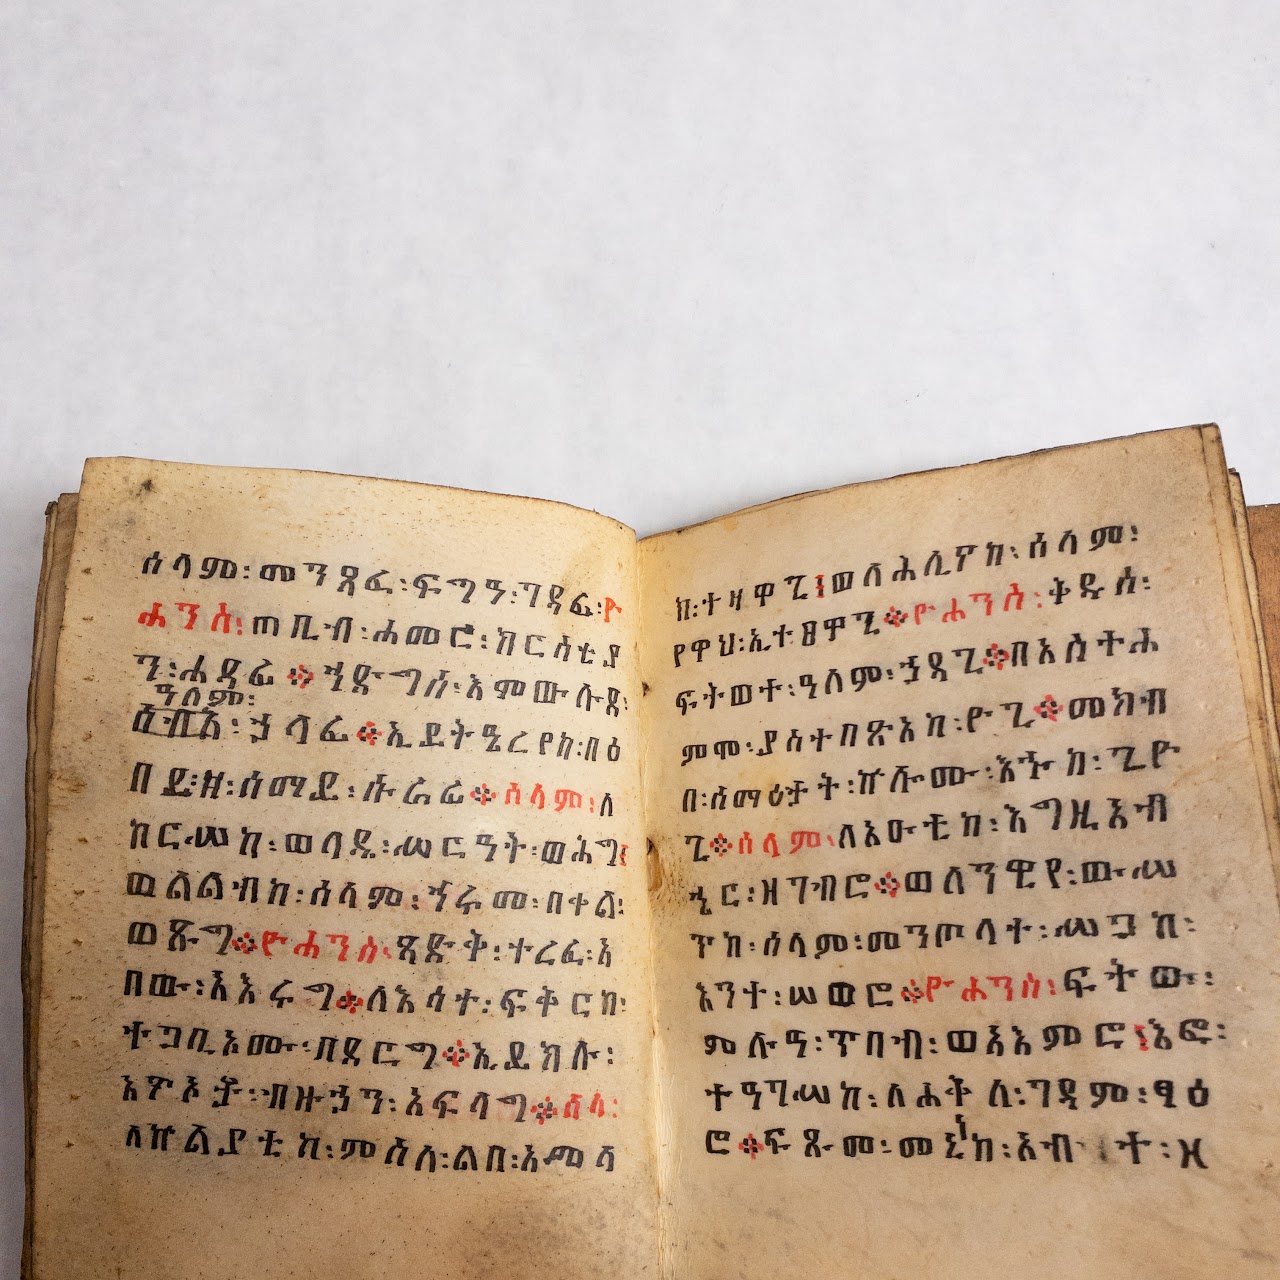 ሰላም፡መንጸፈ፡ፍግዓ፡ገዳፊ፡ዮ
ሐንስ፡ጠቢብ፡ሐመሮ፡ክርስቲያ
ን፡ሐዳፊ፨
ዓለም፡
ኃላፊ፨ኢደትዔረየከ፡በዕ
በይ፡ዘ፡ሰማይ፡ሱራፊ፨ሰላም፡ለ
ከርሠከ፡ወላዱ፡ሠርዓት፡ወሕግ፤
ወልልብከ፡ሰላም፡ኄሩመ፡በቀል፡
ወጹግ፨ዮሐንስ፡ጻድቅ፡ተረፈ፡አ
በው፡እእሩግ፨ለእሳት፡ፍቅርከ፡
ተጋቢኦሙ፡በደርግ፨ኢይክሉ፡
አጥፍኦቶ፡ብዙኃን፡አፍላግ፨ሰላ፡
ለኵልያቲከ፡ምስለ፡ልበ፡አማሳ
ከ፡ተዛዋጊ፤ወለሕሊናከ፡ሰላም፡
የዋህ፡ኢተፀዋጊ፨ዮሐንስ፡ቅዱስ፡
ፍትወተ፡ዓለም፡ኃዳጊ፨በአስተሐ
ምሞ፡ያስተበጽአከ፡ዮጊ፨መክብ
በ፡ሰማዕታት፡ኵሎሙ፡እኍከ፡ጊዮ
ጊ፨ሰላም፡ለአዑቲከ፡እግዚአብ
ሔር፡ዘገብሮ፨ወለንዋየ፡ውሠ
ጥከ፡ሰላም፡መንጦላተ፡ሠጋከ፡
እንተ፡ሠወሮ፨ዮሐንስ፡ፍትው፡
ምሉዓ፡ጥበብ፡ወአእምሮ፤እፎ፡
ተዓገሠከ፡ለሐቅለ፡ገዳም፡ፃዕ
ሮ፨ፍጹመ፡መኒነከ፡